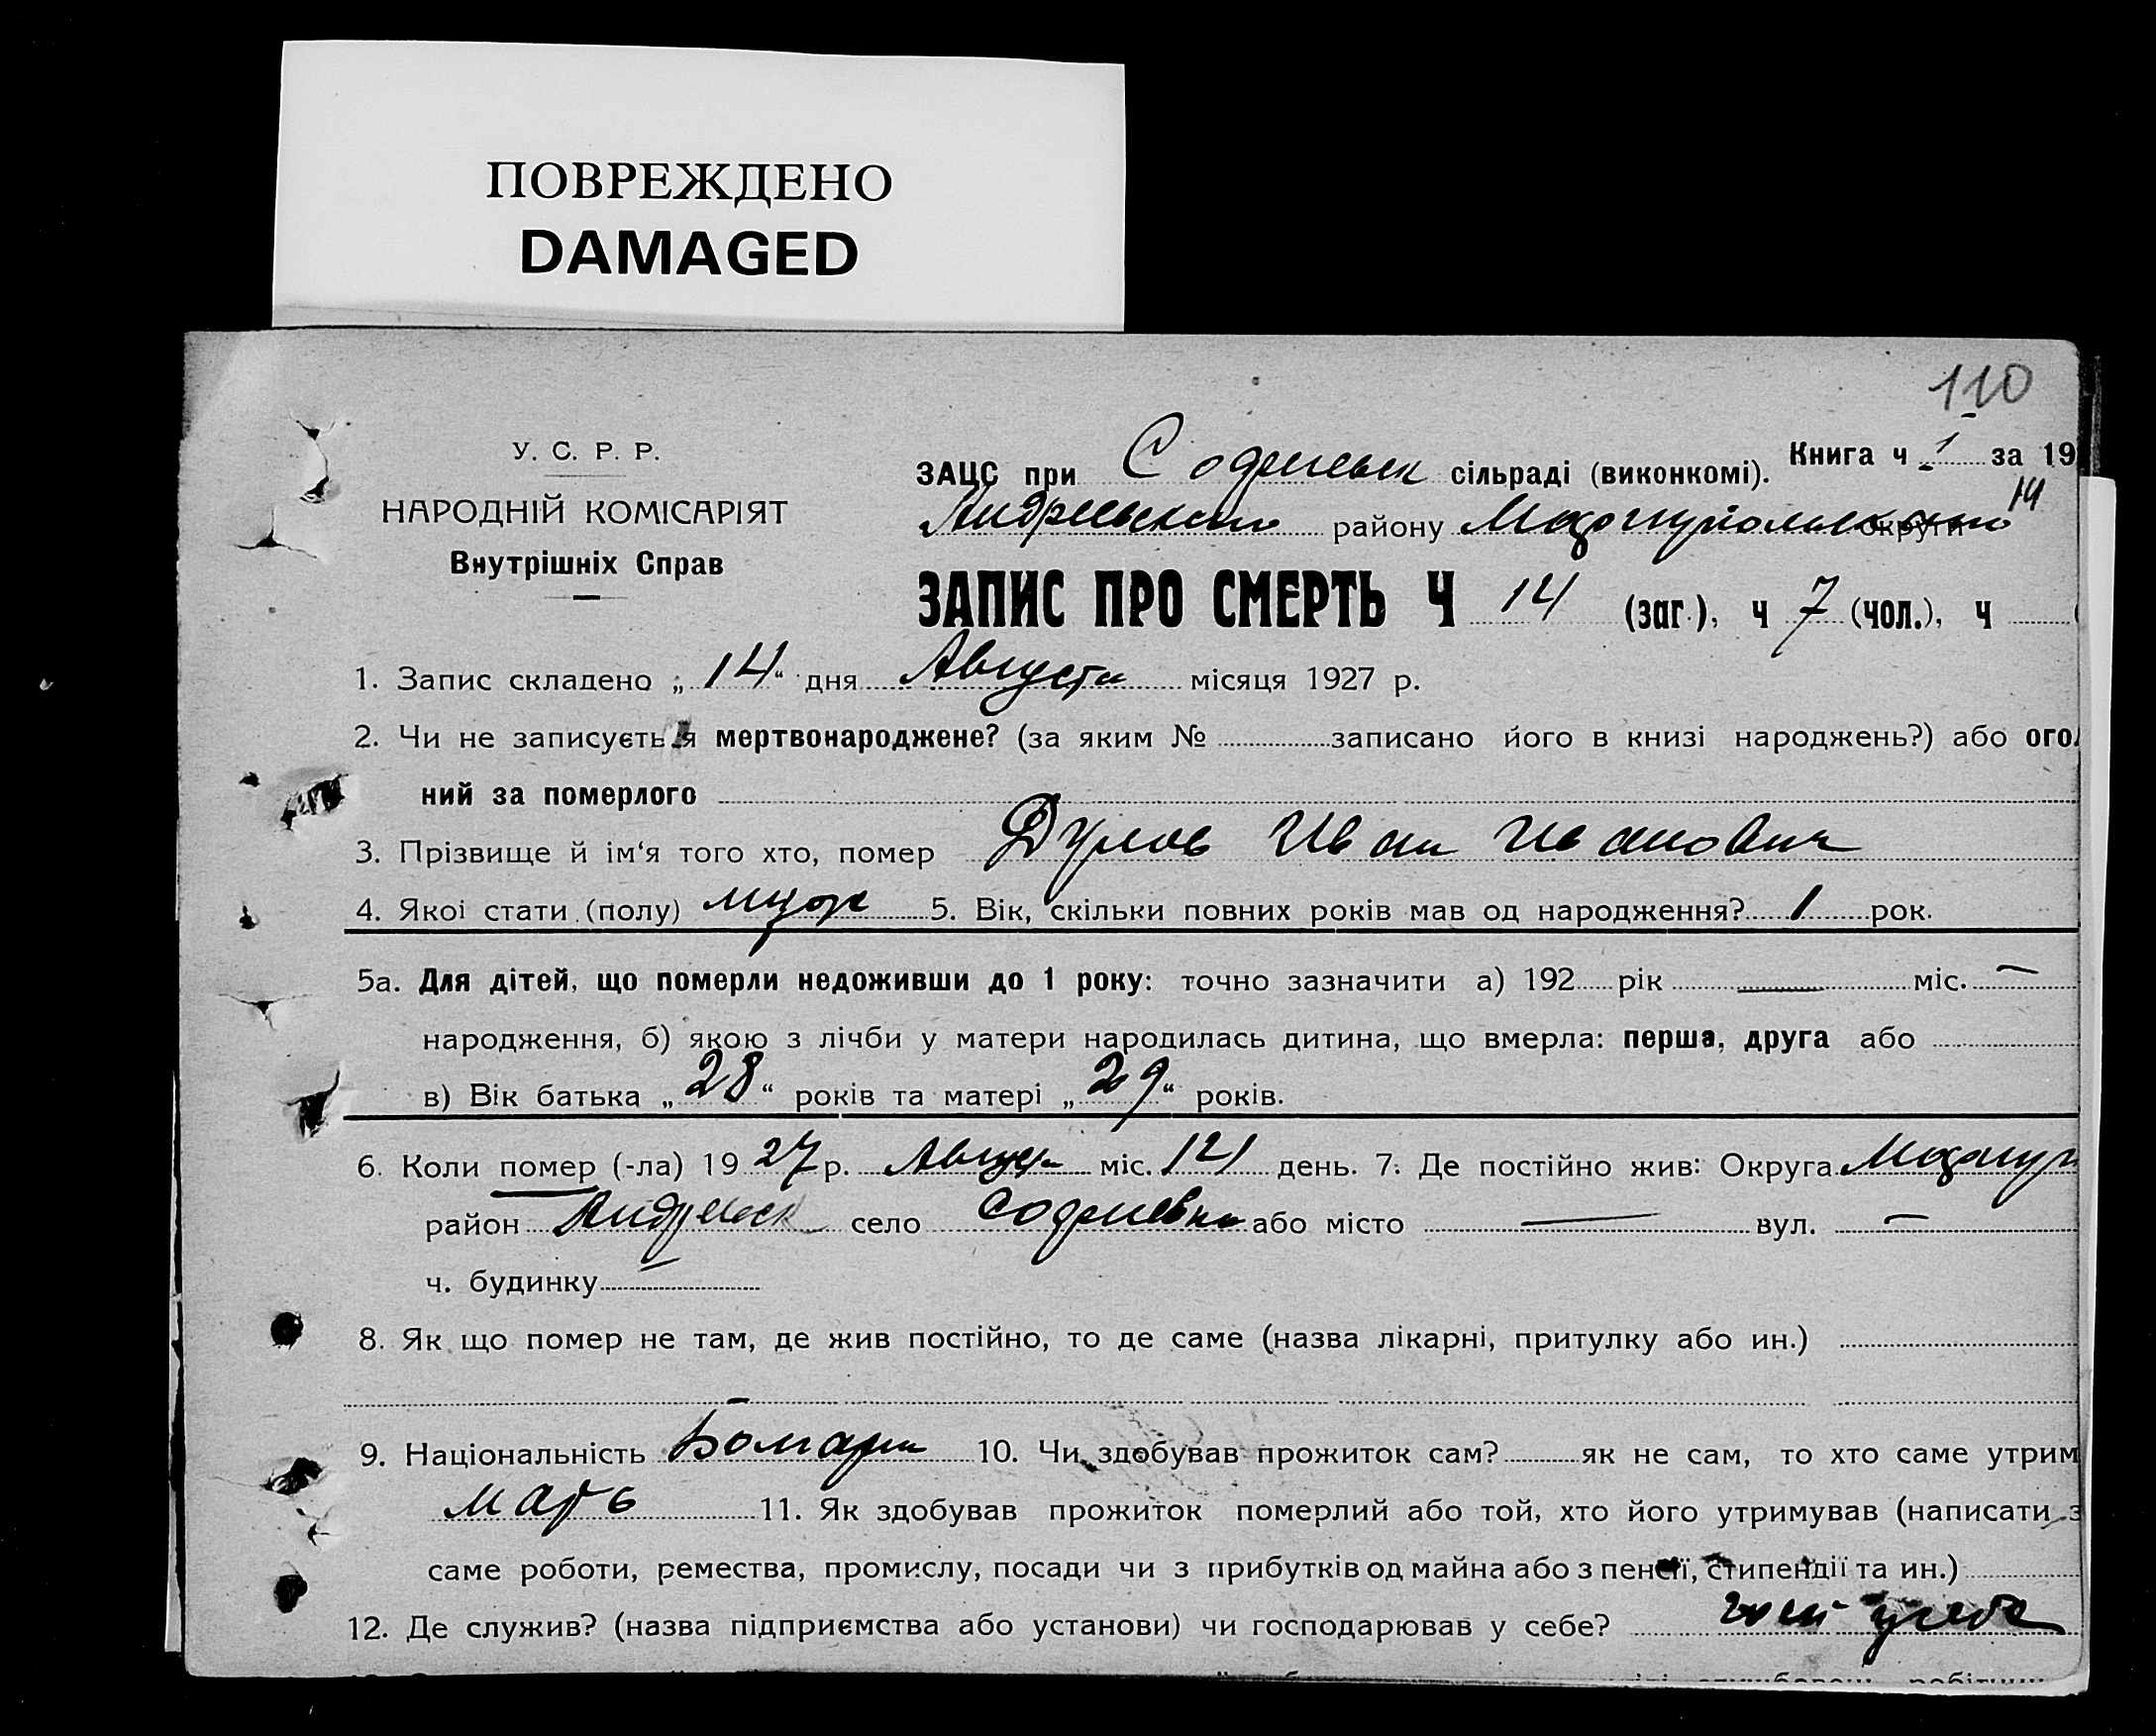 ПОВРЕЖДЕНО
DAMAGED
110
У. С. Р. Р.
НАРОДНІЙ КОМІСАРІЯТ
Внутрішніх Справ
ЗАЦС при сільраді (виконкомі). Книга ч I за 19
14
Андреевского району округи
ЗАПИС ПРО СМЕРТЬ Ч 14 (заг.), ч 7 (чол.), ч
1. Запис складено „14“ дня Августа місяця 1927 р.
2. Чи не записується мертвонароджене? (за яким № записано його в книзі народжень?) або ого
ний за померлого
3. Прізвище й ім‘я того хто, помер Иван Иванович
4. Якоі стати (полу) муж 5. Вік, скільки повних років мав од народження? 1 рок.
5а. Для дітей, що померли недоживши до 1 року: точно зазначити а) 192 рік — міс. —
народження, б) якою з лічби у матери народилась дитина, що вмерла: перша, друга або
в) Вік батька „28“ років та матері „29“ років.
6. Коли помер (-ла) 1927 р. міс. день. 7. Де постійно жив: Округа
район Андреевск село або місто — вул. —
ч. будинку
8. Як що помер не там, де жив постійно, то де саме (назва лікарні, притулку або ин.)
9. Національність Болгари 10. Чи здобував прожиток сам? як не сам, то хто саме утрим
мать 11. Як здобував прожиток померлий або той, хто його утримував (написати з
саме роботи, ремества, промислу, посади чи з прибутків од майна або з пенсії, стипендії та ин.)
12. Де служив? (назва підприємства або установи) чи господарював у себе?